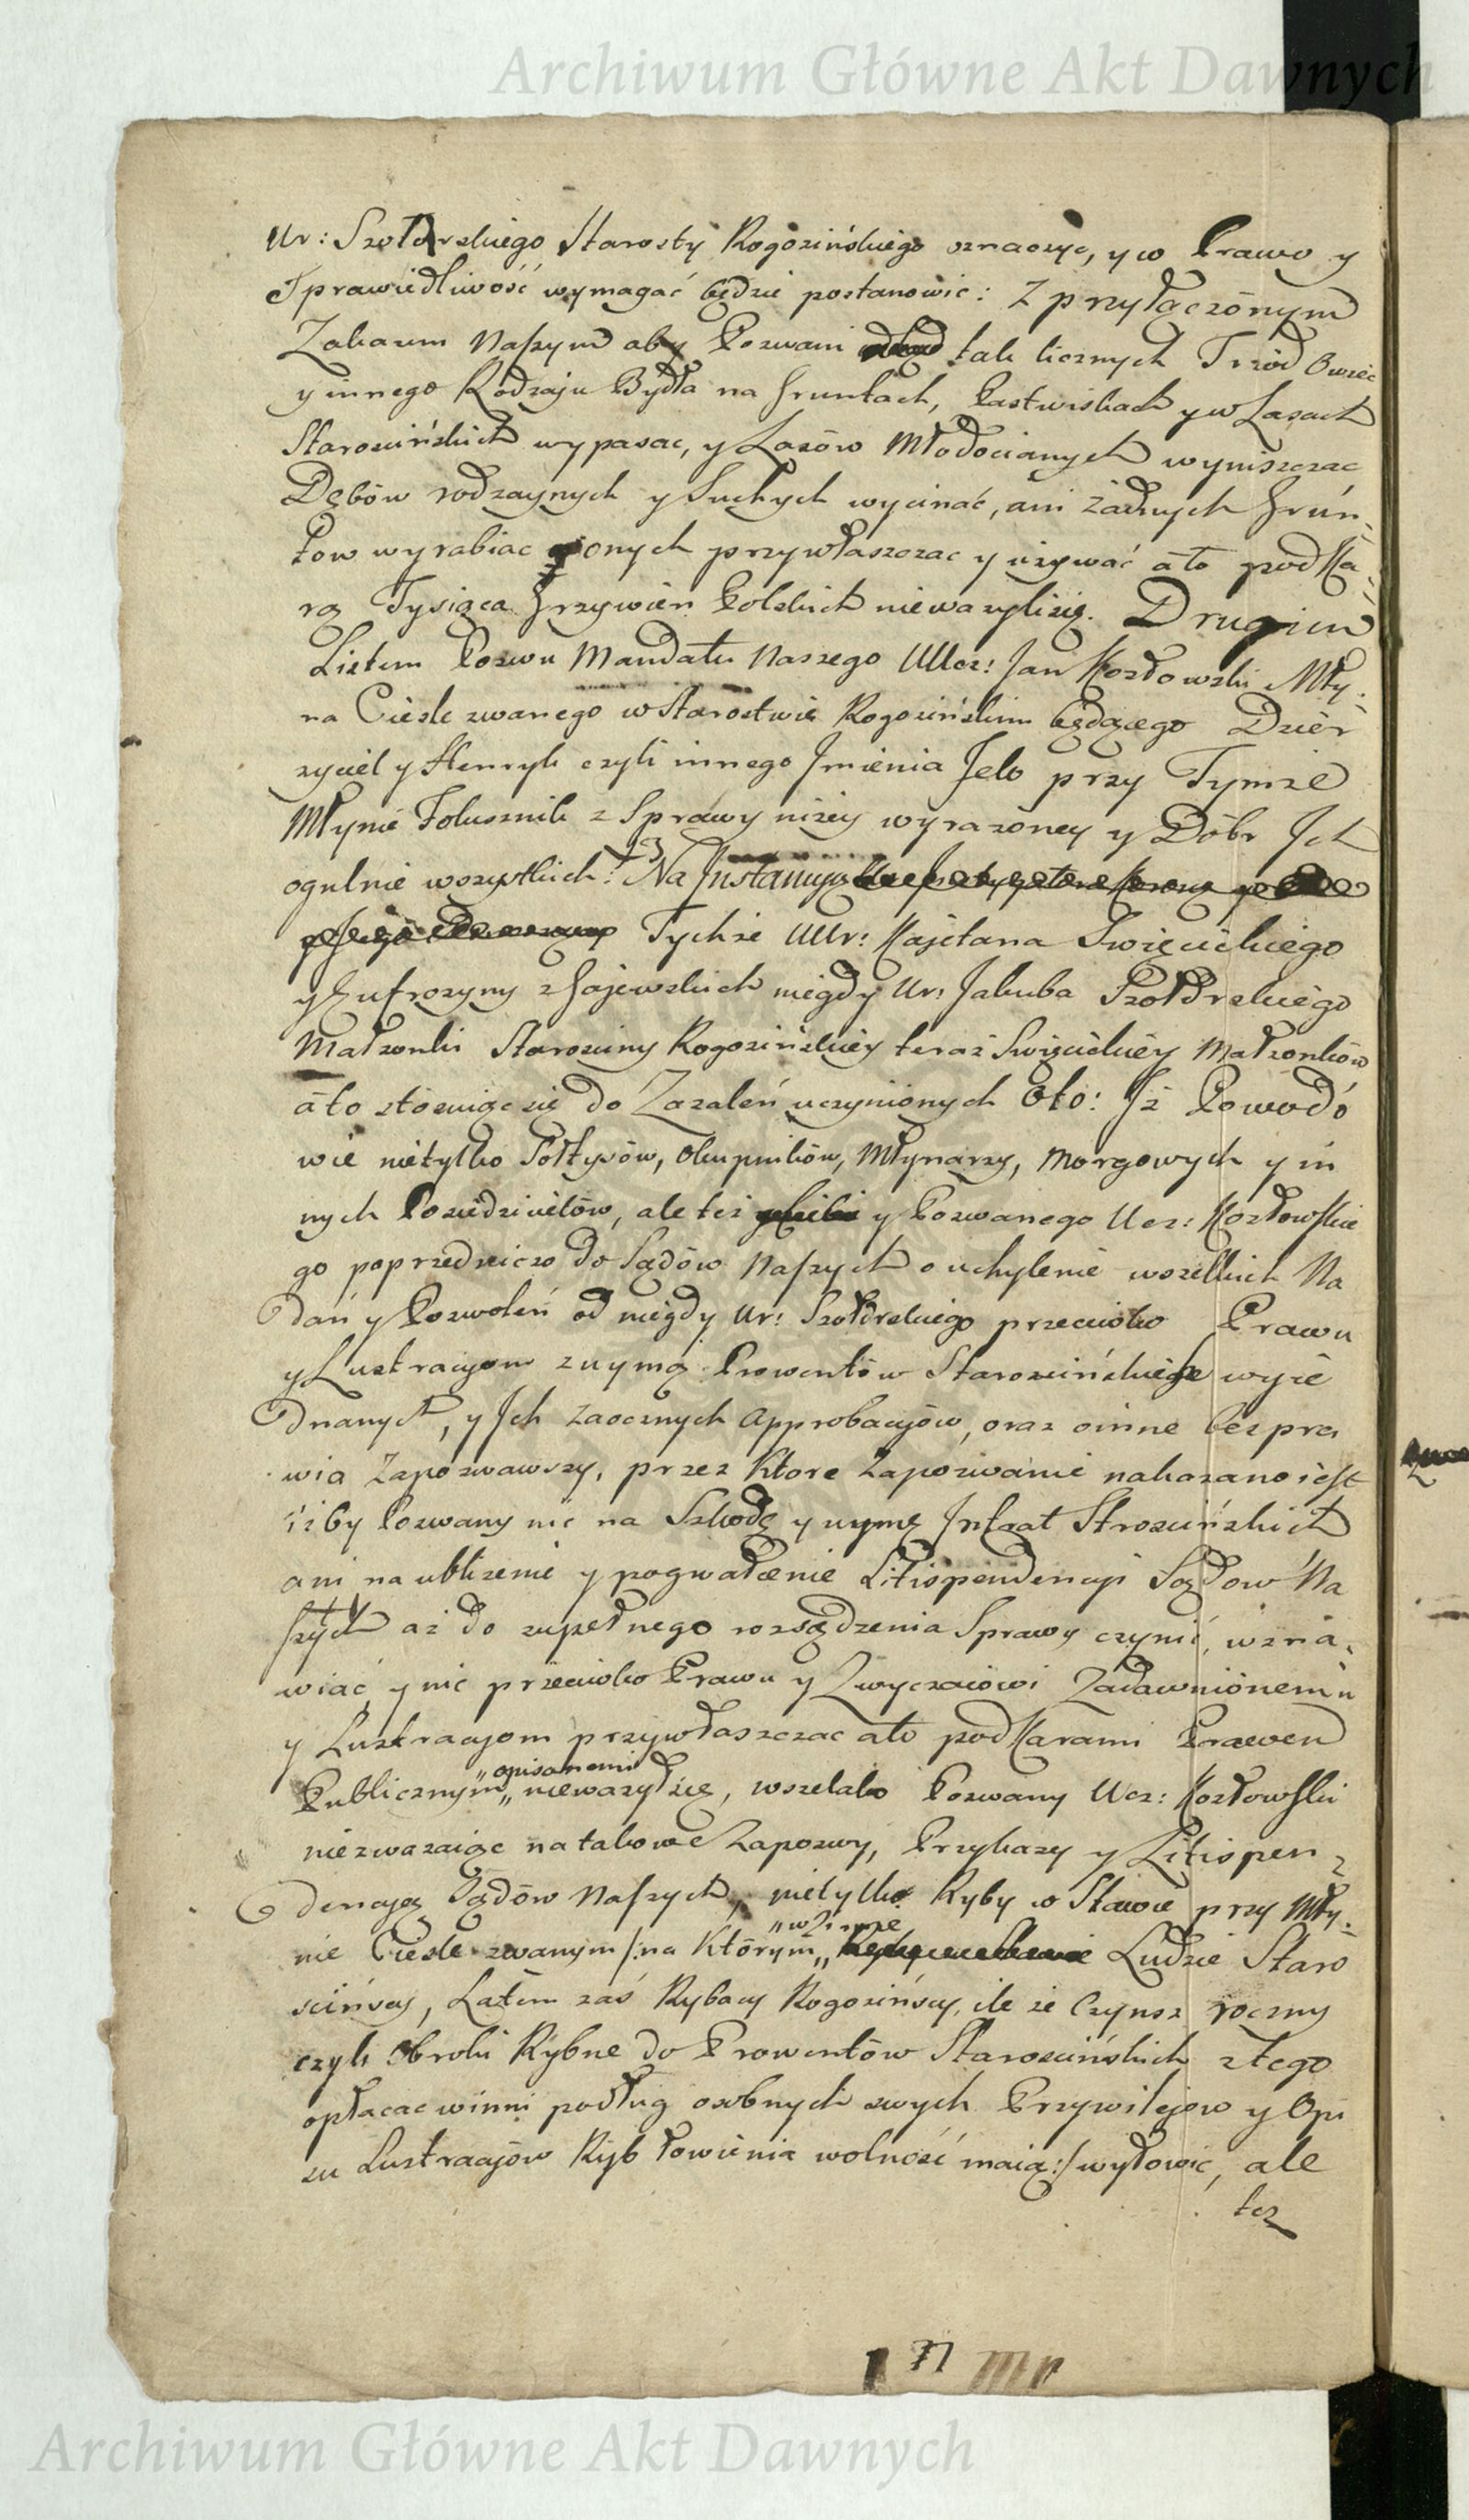 Archiwum Główne Akt Dawnych
Ur: Szołdrskiego Starosty Rogozińskiego oznaczyc, y co Prawo y
Sprawiedliwość wymagać będzie postanowic: Z przyłączonym
Zakazem Naszym aby Pozwani tak licznych Trzód Owiec
y innego Rodzaju Bydła na Gruntach, Pastwiskach y w Lasach
Starościńskich wypasac, y Lasów Młodocianych wyniszczac
Dębów rodzaynych y Suchych wycinać, ani żadnych Grun-
tow wyrabiac y onych przywłaszczac y używać áto pod Ka-
rą Tysiąca Grzywien Polskich niewazylisię. Drugim
Listem Pozwu Mandatu Naszego UUcz: Jan Kozłowski Mły-
na Ciesle zwanego w Starostwie Rogozińskim będącego Dzier
zyciel y Henryk czyli innego Jmienia Jelo przy Tymze
Młynie Folusznik z Sprawy nizey wyrazoney y Dóbr Jch
ogulnie wszystkich. Na Jnstancyą
Tychże UUr: Kajetana Swięcickiego
y Eufrozyny z Gajewskich niegdy Ur: Jakuba Szołdrskiego
Małzonki Starosciny Rogozińskiey teraź Swięcickiey Małzonków
áto stósuiąc się do Zazaleń uczynionych Oto: Jż Powodo
wie nietylko Sołtysów, Okupników, Młynarzy, Morgowych y in
nych Posiedzicielów, ale też y Pozwanego Ucz: Kozłowskie
go poprzedniczo do Sądów Naszych o uchylenie wszelkich Na
dań y Pozwoleń od niegdy Ur: Szołdrskiego przeciwko Prawu
y Lustracyom z uymą Prowentów Starościńskich wyie
dnanych, y Jch zaocznych Approbacyów, oraz o inne bezpra
wia Zapozwawszy, przez Ktore Zapozwanie nakazano iest
iżby Pozwany nic na Szkodę y uymę Jntrat Strościńskich
ani na ublizenie y pogwałcenie Litispendencyi Sądow Na
szych aż do zupełnego rozsądzenia Sprawy czynić, wzna-
wiać y nic przeciwko Prawu y Zwyczaiowi Zadawnionemu
y Lustracyom przywłaszczac áto pod Karami Prawem
Publicznym „opisanemi„ niewazył się, wszelako Pozwany Ucz: Kozłowski
niezwazaiąc na takowe Zapozwy, Przykazy y Litispen-
dencyą Sądów Naszych, nietylko Ryby w Stawie przy Mły-
nie Ciesle zwanym /: na Którym „w Zimie„ Ludzie Staro
scińscy, Latem zaś Rybacy Rogozińscy, ile że Czynsz roczny
czyli Obroki Rybne do Prowentów Starościńskich z tego
opłacac winni podług osobnych swych Przywilejow y Opi
su Lustracyów Ryb łowienia wolność maią :/ wyłowić, ale
tez
Archiwum Główne Akt Dawnych